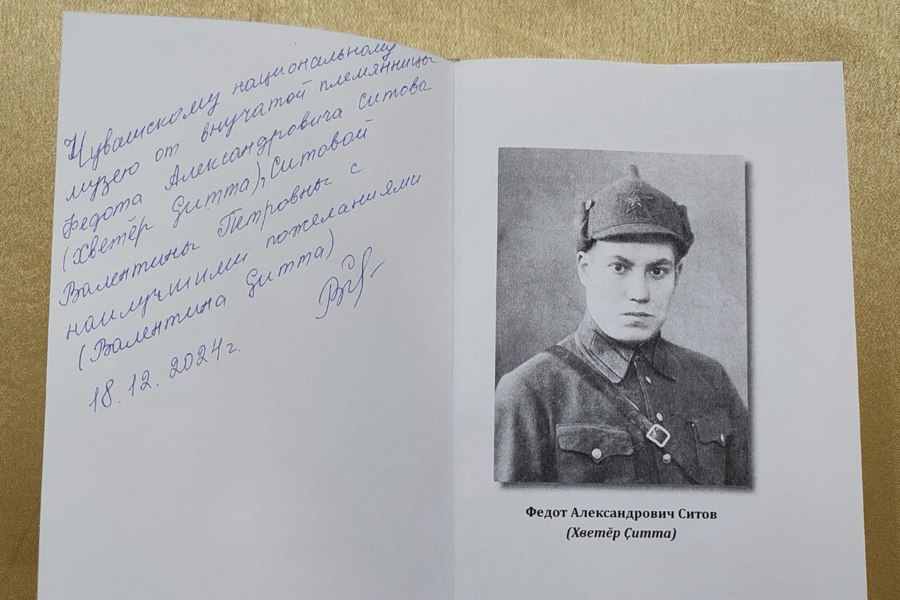 Чувашскому национальному
музею от внучатой племянницы
Федота Александровича Ситова
(Хветёр Ҫитта), Ситовой
Валентины Петровны с
наилучшими пожеланиями
(Валентина Ҫитта)
18.12.2024г.
Федот Александрович Ситов
(Хветӗр Ҫитта)